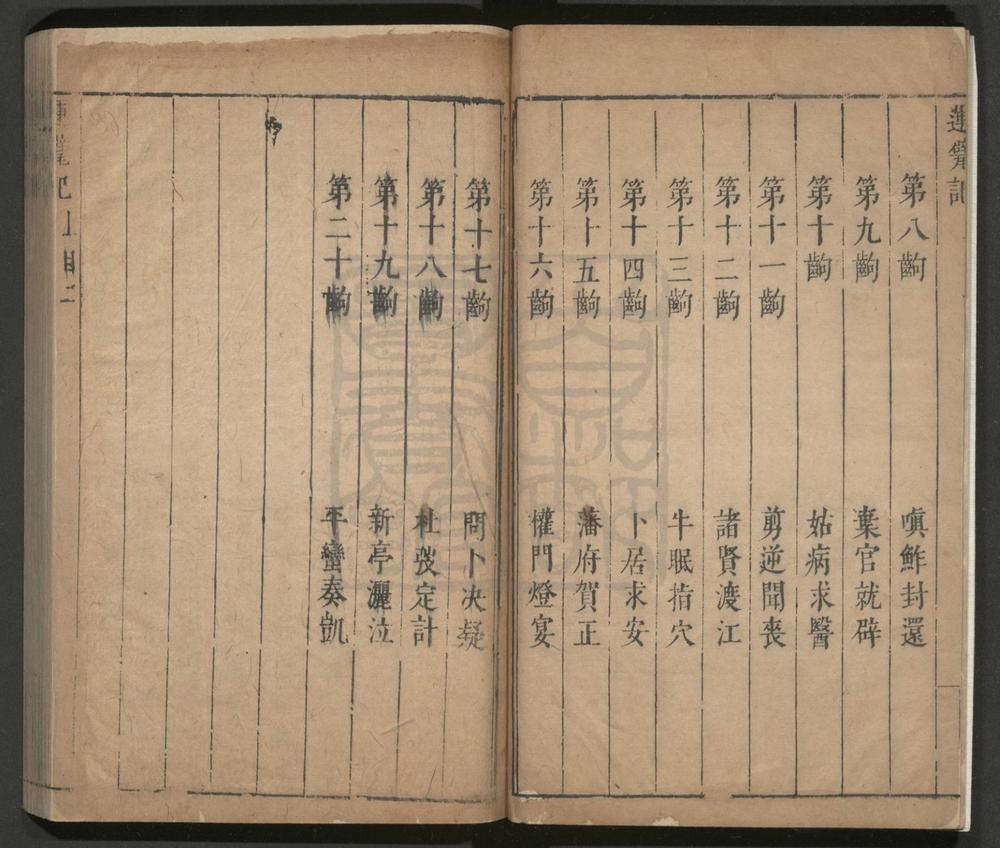 運甓記
第八齣 嗔鮓封還
第九齣 棄官就辟
第十齣 姑病求醫
第十一齣 剪逆聞喪
第十二齣 諸賢渡江
第十三齣 牛眠指穴
第十四齣 卜居求安
第十五齣 藩府賀正
第十六齣 權門燈宴
第十七齣 問卜决疑
第十八齣 杜弢定計
第十九齣 新亭灑泣
第二十齣 平蠻奏凱